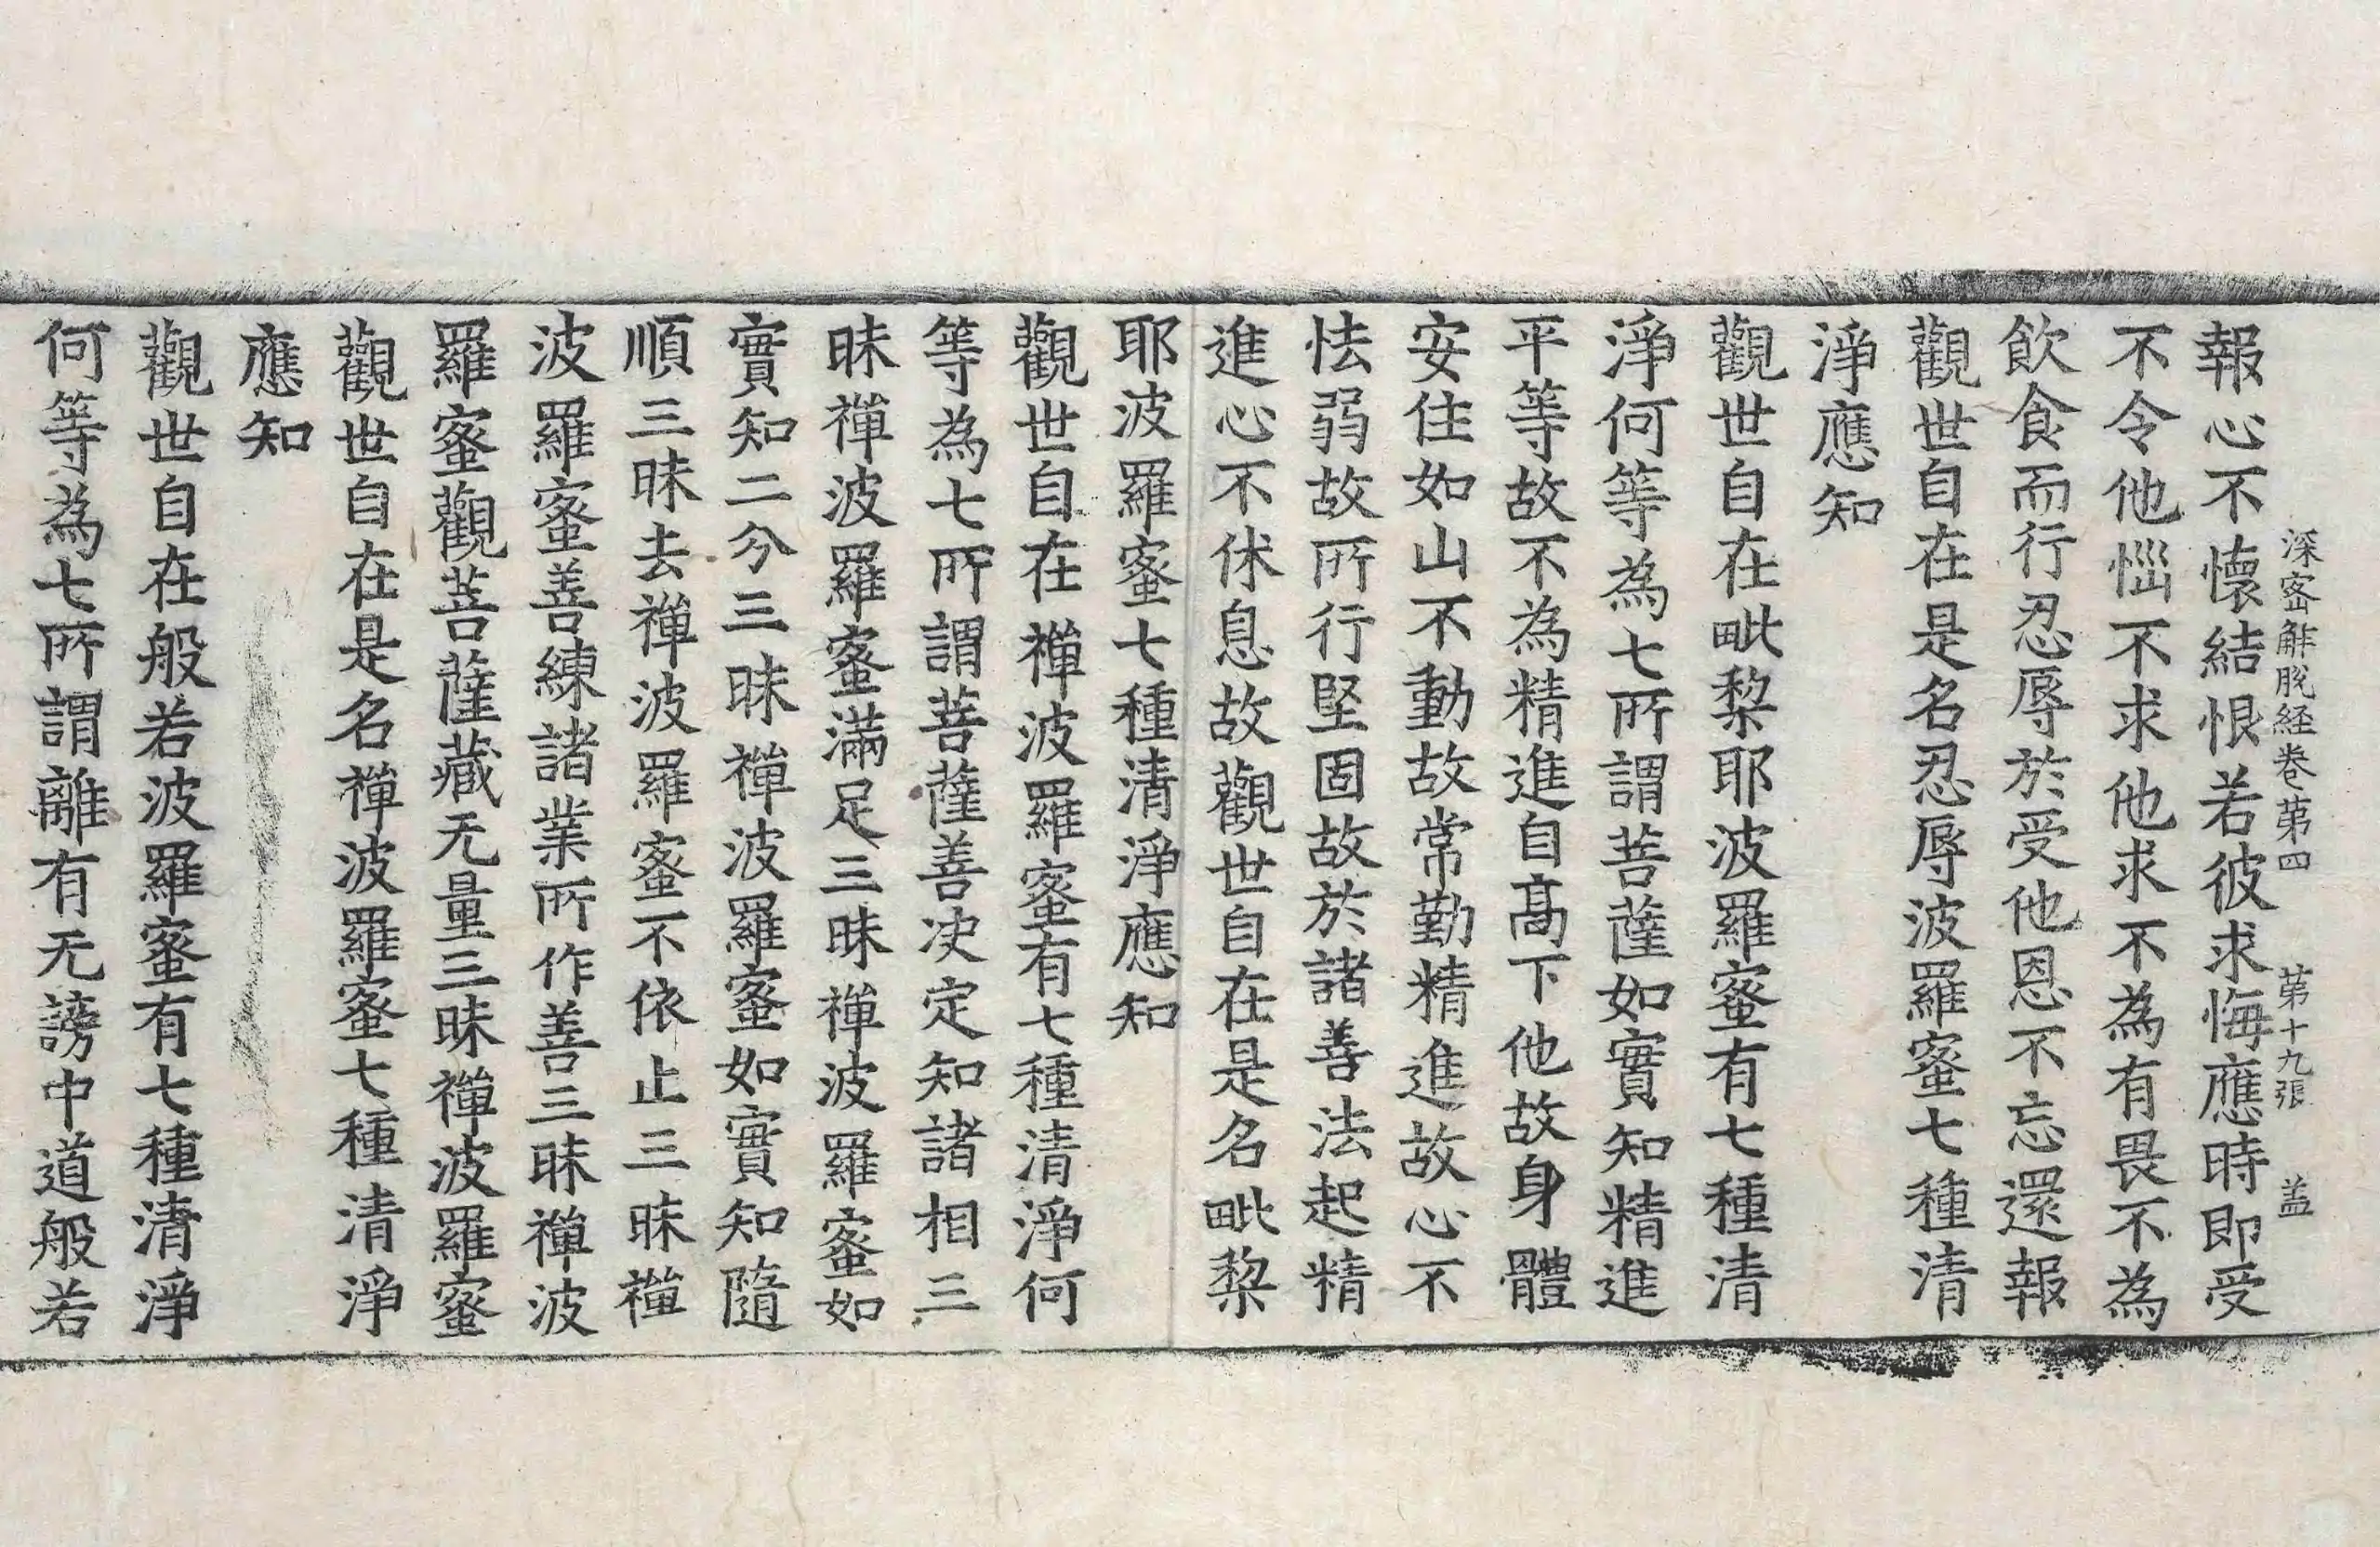 深密解脫経卷苐四 苐十九張 盖
報心不懷結恨若彼求悔應時即受
不令他惱不求他求不為有畏不為
飲食而行忍辱於受他恩不忘還報
觀世自在是名忍辱波羅蜜七種清
淨應知
觀世自在毗梨耶波羅蜜有七種清
淨何等為七所謂菩薩如實知精進
平等故不為精進自髙下他故身體
安住如山不動故常勤精進故心不
怯弱故所行堅固故於諸善法起精
進心不休息故觀世自在是名毗梨
耶波羅蜜七種清淨應知
觀世自在禪波羅蜜有七種清淨何
等為七所謂菩薩善决定知諸相三
昧禪波羅蜜滿足三昧禪波羅蜜如
實知二分三昧禪波羅蜜如實知隨
順三昧去禪波羅蜜不依止三昧禪
波羅蜜善練諸業所作善三昧禪波
羅蜜觀菩薩藏无量三昧禪波羅蜜
觀世自在是名禪波羅蜜七種清淨
應知
觀世自在般若波羅蜜有七種清淨
何等為七所謂離有无謗中道般若